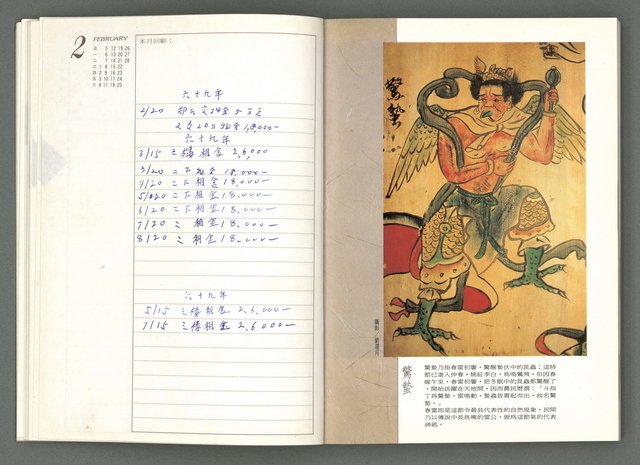 2 FEBRUARY
日 5 12 19 26
一 6 13 20 27
二 7 14 21 28
三 1 8 15 22
四 2 9 16 23
五 3 10 17 24
六 4 11 18 25
本月回顧：
六十九年
2/20
六十九年
3/15 三樓租金 26,000—
3/20 二下租金 18,000—
4/20 二下租金 18,000—
5/20 二下租金 18,000—
6/20 二下租金 18,000—
7/20 二 租金 18,000—
8/20 二 租金 18,000—
六十九年
5/15 三樓租金 26,000—
7/15 三樓租金 26,000—
驚蟄
攝影／劉還月
驚蟄
驚蟄乃指春雷初響，驚醒蟄伏中的昆蟲；這時
節已進入仲春，桃紅李白，鳥鳴鶯飛，但因春
暖乍至，春雷初響，把冬眠中的昆蟲都驚醒了
，開始活躍在天地間，因而農民曆謂：「斗指
丁為驚蟄，雷鳴動，蟄蟲皆震起而出，故名驚
蟄。」
春雷即是這節令最具代表性的自然現象，民間
乃以傳說中長鳥嘴的雷公，做為這節氣的代表
神祗。